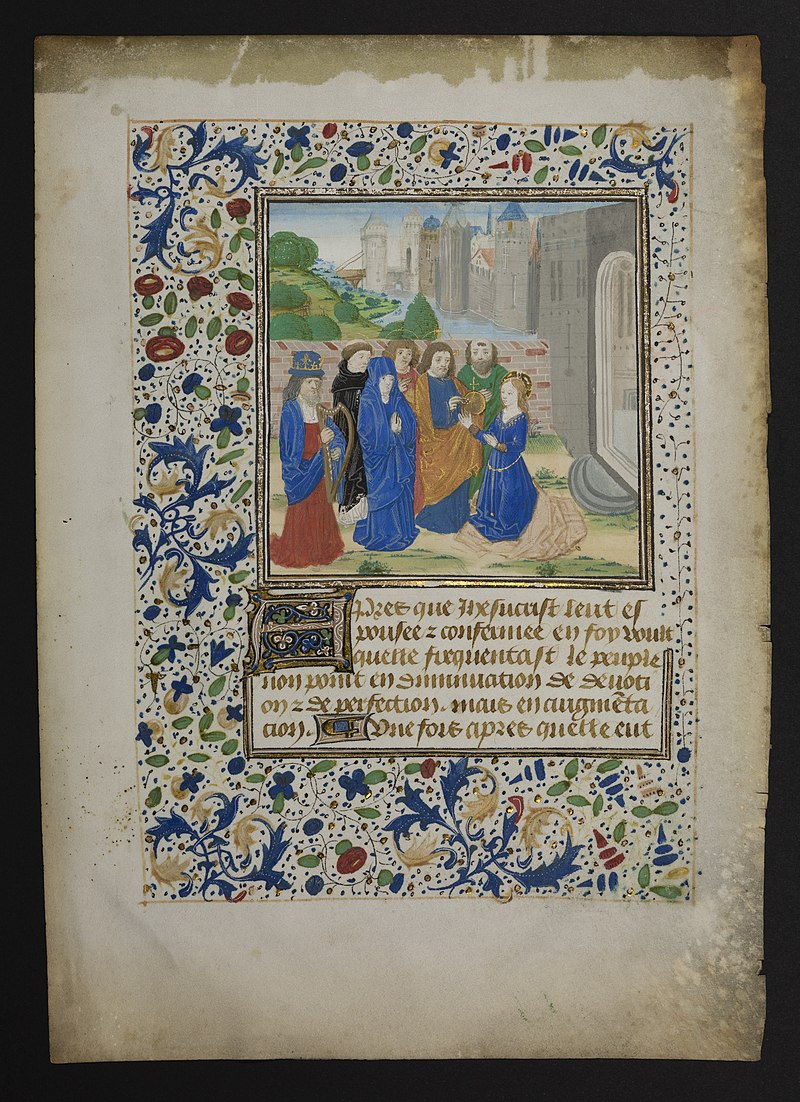 Apres que Ihesucrist leut es
pousee ⁊ confermee en foy voult
quelle frequentast le peuple
non point en diminuation de deuoti
on ⁊ de perfection. mais en augmēta
cion. Vne fois apres quelle eut